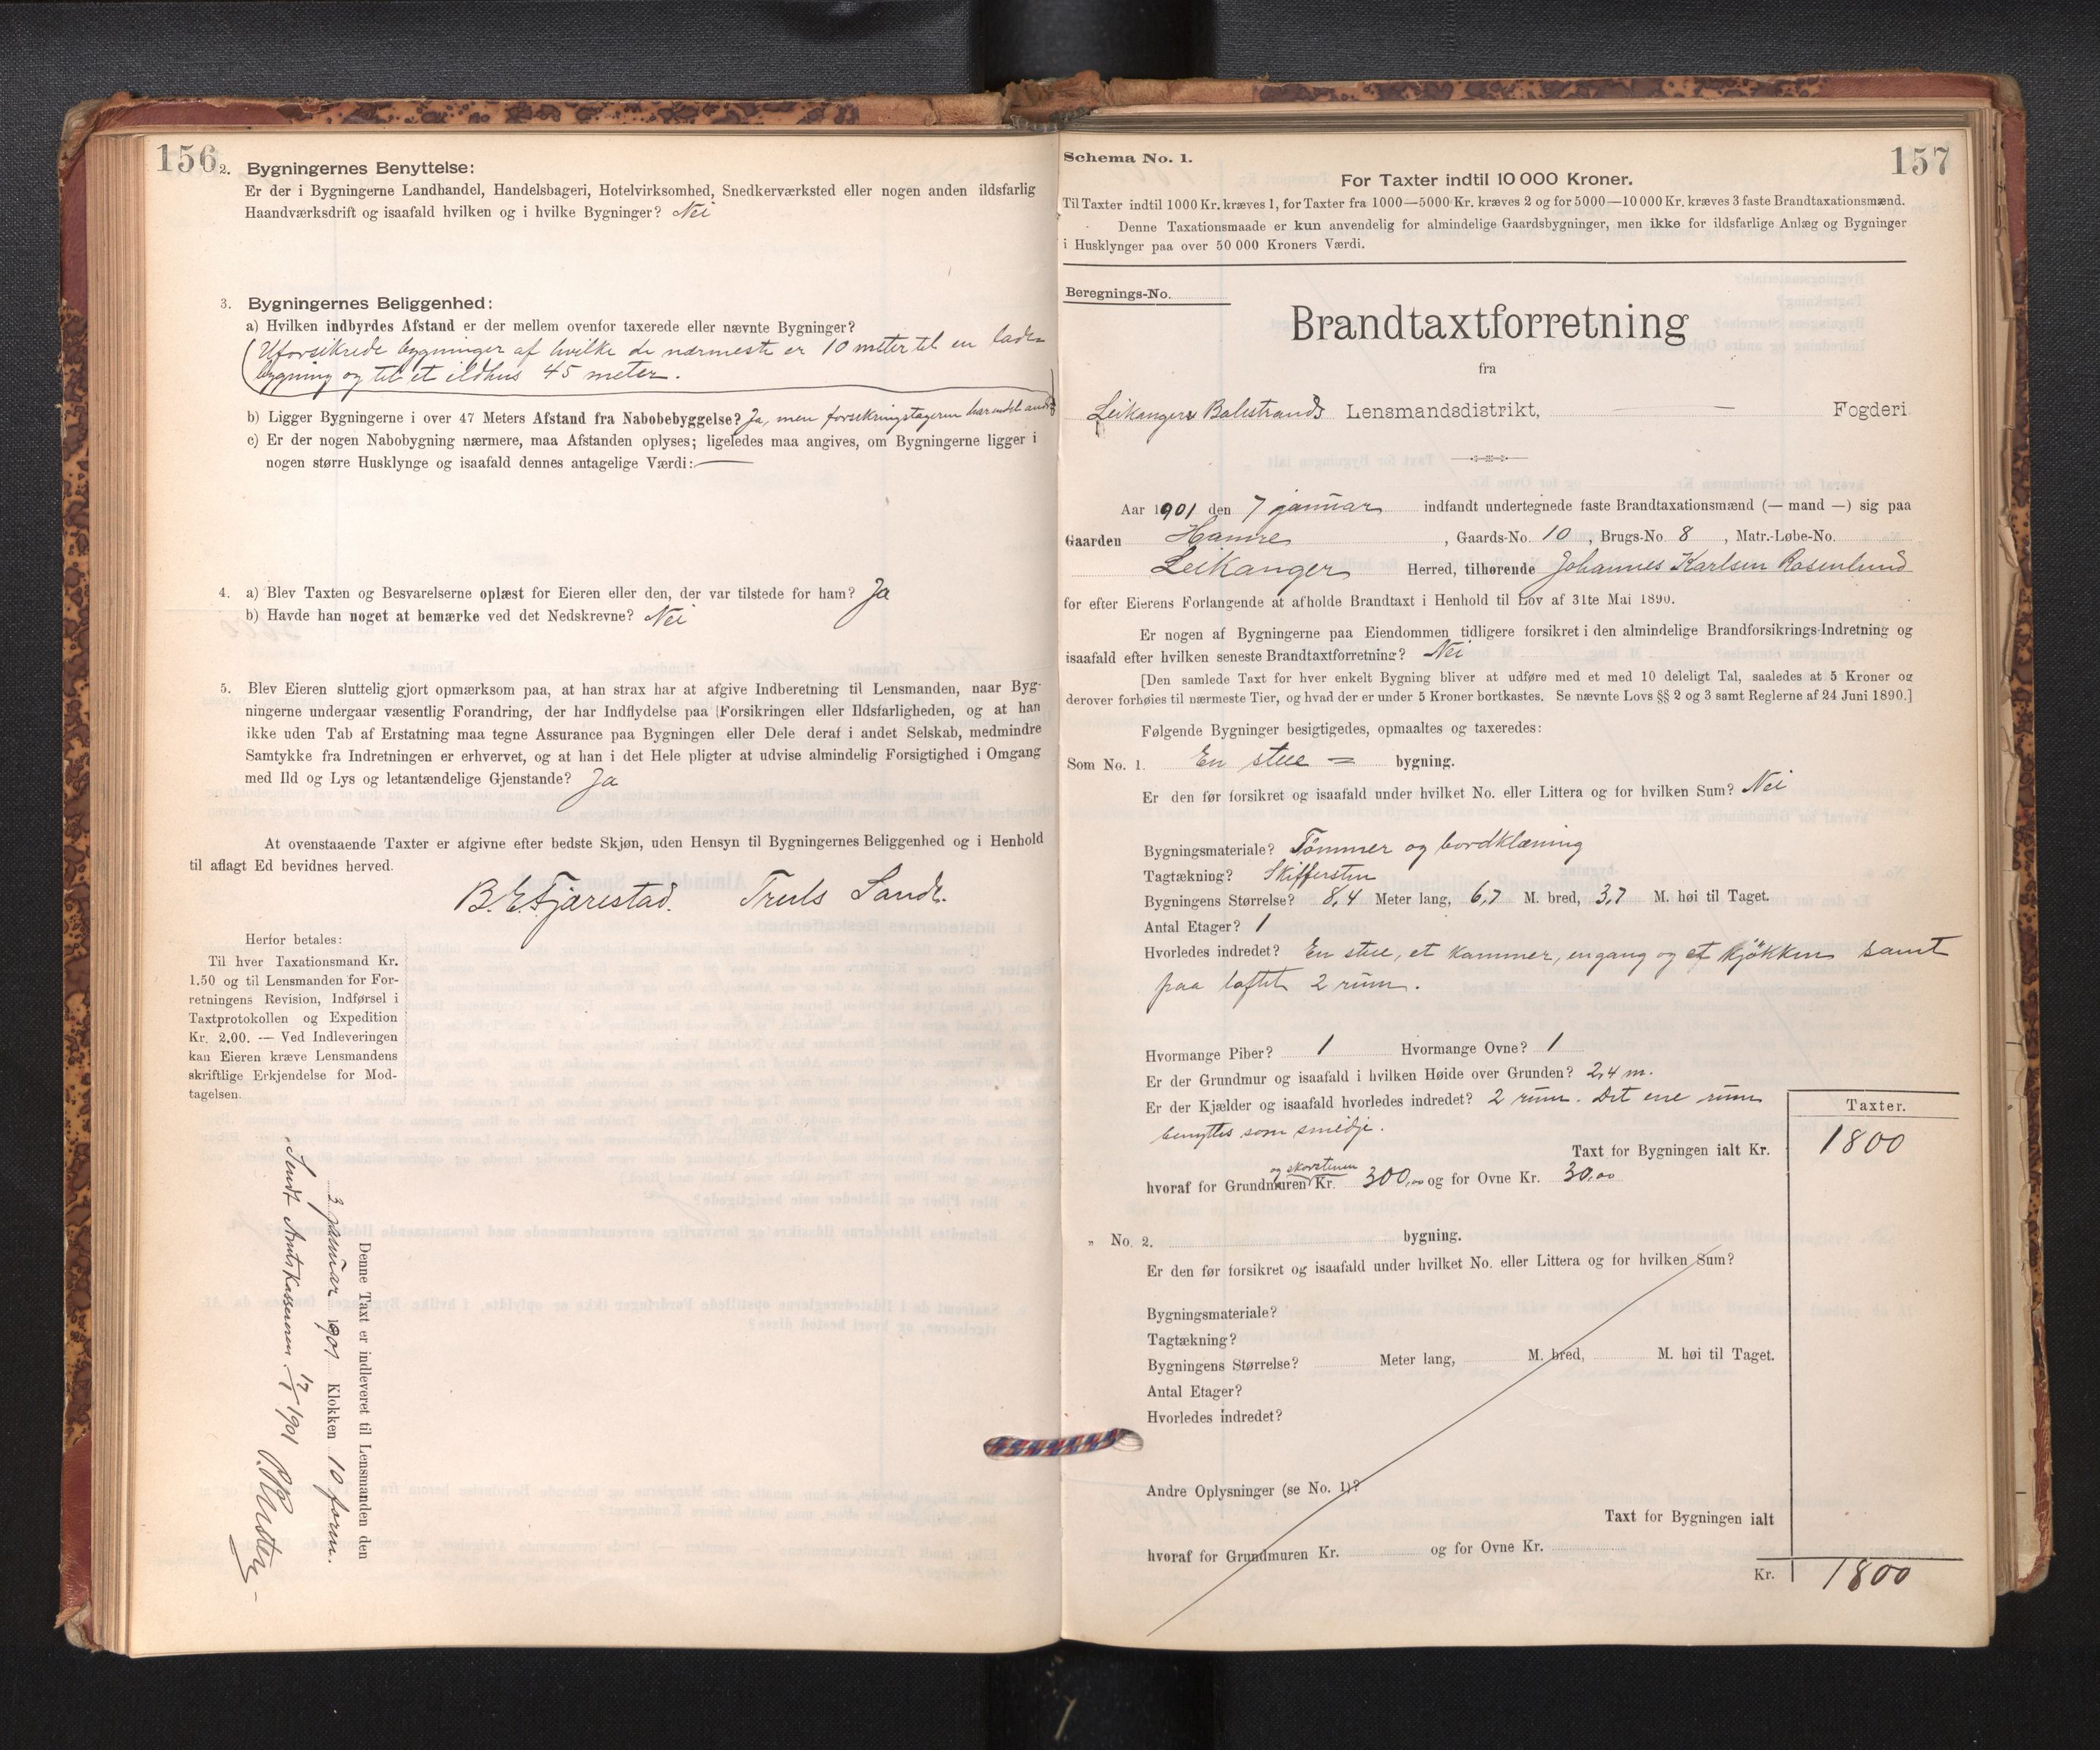 156
2. Bygningernes Benyttelse:
Er der i Bygningerne Landhandel, Handelsbageri, Hotelvirksomhed, Snedkerværksted eller nogen anden ildsfarlig
Haandværksdrift og isaafald hvilken og i hvilke Bygninger? Nei
3. Bygningernes Beliggenhed:
a) Hvilken indbyrdes Afstand er der mellem ovenfor taxerede eller nævnte Bygninger?
(Uforsikrede bygninger af hvilke de nærmeste er 10 meter til en lade=
bygning og til et ildhus 45 meter.
b) Ligger Bygningerne i over 47 Meters Afstand fra Nabobebyggelse? Ja, men forsikringstageren har endel andre
c) Er der nogen Nabobygning nærmere, maa Afstanden oplyses; ligeledes maa angives, om Bygningerne ligger i
nogen større Husklynge og isaafald dennes antagelige Værdi: —
4. a) Blev Taxten og Besvarelserne oplæst for Eieren eller den, der var tilstede for ham? Ja
b) Havde han noget at bemærke ved det Nedskrevne? Nei
5. Blev Eieren sluttelig gjort opmærksom paa, at han strax har at afgive Indberetning til Lensmanden, naar Byg-
ningerne undergaar væsentlig Forandring, der har Indflydelse paa Forsikringen eller Ildsfarligheden, og at han
ikke uden Tab af Erstatning maa tegne Assurance paa Bygningen eller Dele deraf i andet Selskab, medmindre
Samtykke fra Indretningen er erhvervet, og at han i det Hele pligter at udvise almindelig Forsigtighed i Omgang
med Ild og Lys og letantændelige Gjenstande? Ja
At ovenstaaende Taxter er afgivne efter bedste Skjøn, uden Hensyn til Bygningernes Beliggenhed og i Henhold
til aflagt Ed bevidnes herved.
B. E. Fjærestad. Truls Sande.
Herfor betales:
Til hver Taxationsmand Kr.
1.50 og til Lensmanden for For-
retningens Revision, Indførsel i
Taxtprotokollen og Expedition
Kr. 2.00. — Ved Indleveringen
kan Eieren kræve Lensmandens
skriftlige Erkjendelse for Mod-
tagelsen.
Denne Taxt er indleveret til Lensmanden den
januar 1901 Klokken 10 form.
Sendt Amtskasseren 17/1 1901
157
Schema No. 1.
For Taxter indtil 10 000 Kroner.
Til Taxter indtil 1000 Kr. kræves 1, for Taxter fra 1000—5000 Kr. kræves 2 og for 5000—10 000 Kr. kræves 3 faste Brandtaxationsmænd.
Denne Taxationsmaade er kun anvendelig for almindelige Gaardsbygninger, men ikke for ildsfarlige Anlæg og Bygninger
i Husklynger paa over 50 000 Kroners Værdi.
Beregnings-No.
Brandtaxtforretning
fra
Leikanger Balestrands Lensmandsdistrikt, — Fogderi
Aar 1901 den 7 januar indfandt undertegnede faste Brandtaxationsmænd (— mand —) sig paa
Gaarden Hamre, Gaards-No. 10, Brugs-No. 8, Matr.-Løbe-No.
Leikanger Herred, tilhørende Johannes Karlsen Rosenlund
for efter Eierens Forlangende at afholde Brandtaxt i Henhold til Lov af 31te Mai 1890.
Er nogen af Bygningerne paa Eiendommen tidligere forsikret i den almindelige Brandforsikrings-Indretning og
isaafald efter hvilken seneste Brandtaxtforretning? Nei
[Den samlede Taxt for hver enkelt Bygning bliver at udføre med et med 10 deleligt Tal, saaledes at 5 Kroner og
derover forhøies til nærmeste Tier, og hvad der er under 5 Kroner bortkastes. Se nævnte Lovs §§ 2 og 3 samt Reglerne af 24 Juni 1890.]
Følgende Bygninger besigtigedes, opmaaltes og taxeredes:
Som No. 1. En stue = bygning.
Er den før forsikret og isaafald under hvilket No. eller Littera og for hvilken Sum? Nei
Bygningsmateriale? Tømmer og bordklæning
Tagtækning? Skiffersten
Bygningens Størrelse? 8,4 Meter lang, 6,7 M. bred, 3,7 M. høi til Taget.
Antal Etager? 1
Hvorledes indredet? En stue, et kammer, en gang og et kjøkken samt
paa loftet 2 rum.
Hvormange Piber? 1 Hvormange Ovne? 1
Er der Grundmur og isaafald i hvilken Høide over Grunden? 2,4 m.
Er der Kjælder og isaafald hvorledes indredet? 2 rum. Det ene rum
benyttes som smidje.
Taxter.
Taxt for Bygningen ialt Kr. 1800
og skorstenen
hvoraf for Grundmuren Kr. 300,00 og for Ovne Kr. 30,00
„ No. 2. bygning.
Er den før forsikret og isaafald under hvilket No. eller Littera og for hvilken Sum?
Bygningsmateriale?
Tagtækning?
Bygningens Størrelse? Meter lang, M. bred, M. høi til Taget.
Antal Etager?
Hvorledes indredet?
Andre Oplysninger (se No. 1)?
Taxt for Bygningen ialt
hvoraf for Grundmuren Kr. og for Ovne Kr.
Kr. 1800